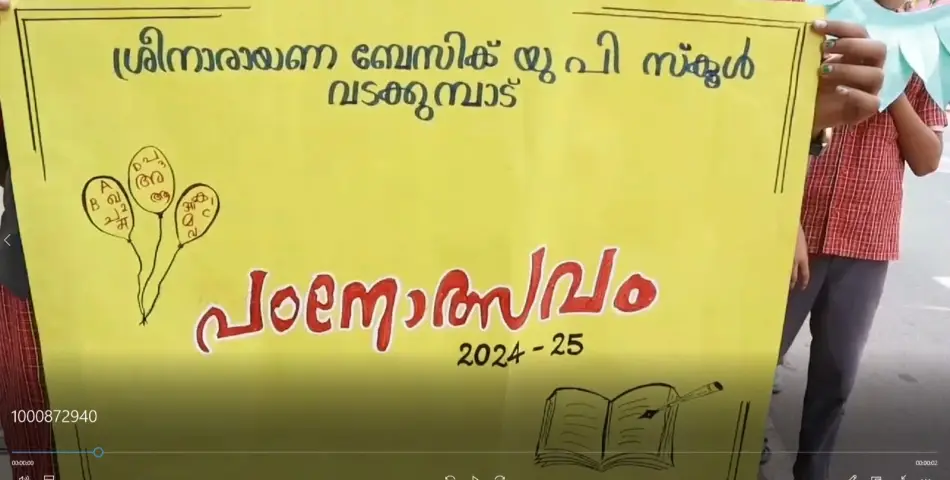 ശ്രീനാരായണ ബേസിക് യു പി സ്കൂൾ
വടക്കുമ്പാട്
പഠനോത്സവം
2024-25
1000872940
00:00:00
00:00:02